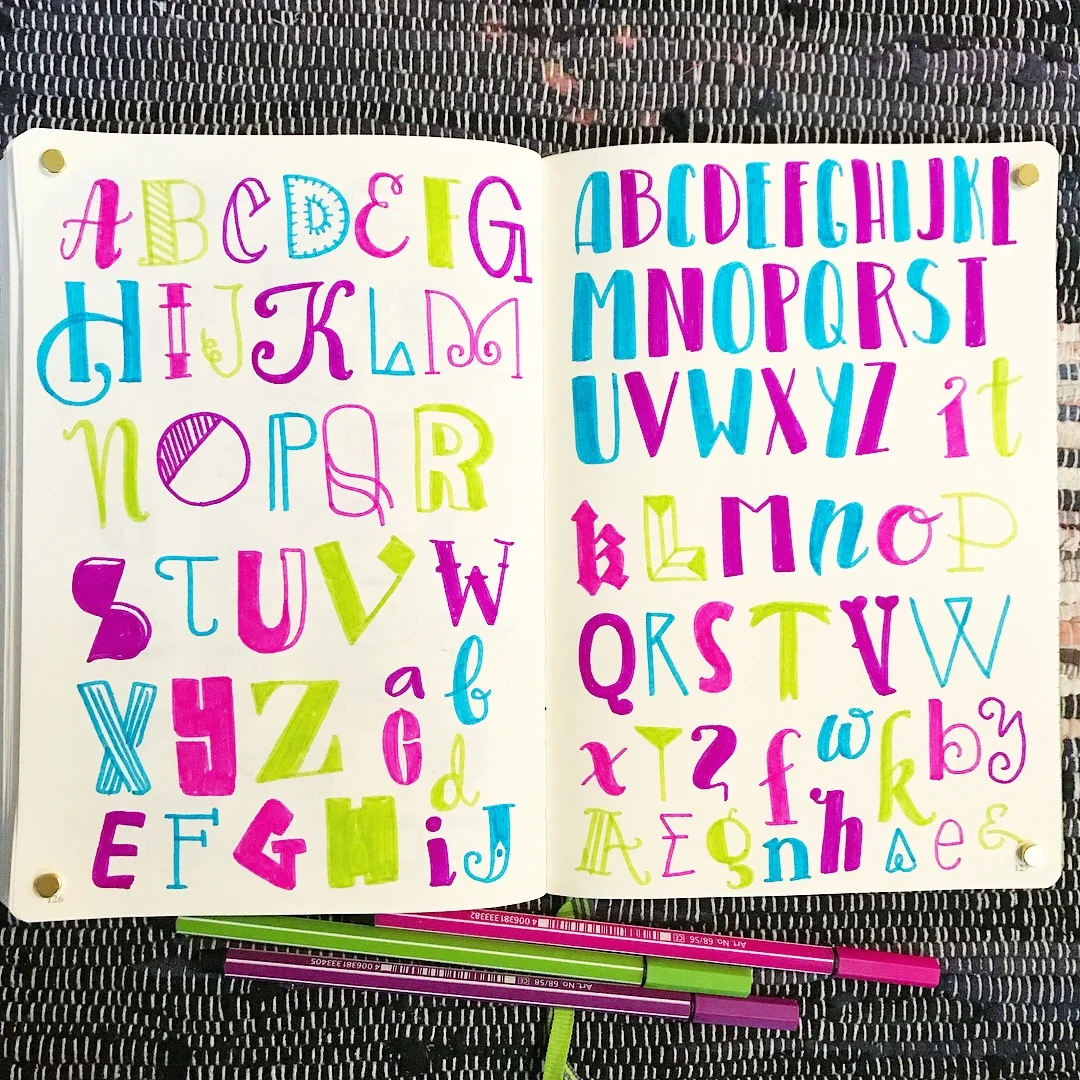 A B C D E F G
H I J K L M
N O P Q R
S T U V W
X Y Z a b
c d
E F G H i J
126
A B C D E F G H I J K L
M N O P Q R S T
U V W X Y Z i t
k L M n o P
Q R S T V W
x Y Z f w k b y
A E g n h a e &
4 006381 333382 CE Art. No. 68/56
4 006381 333405 CE Art. No. 68/58